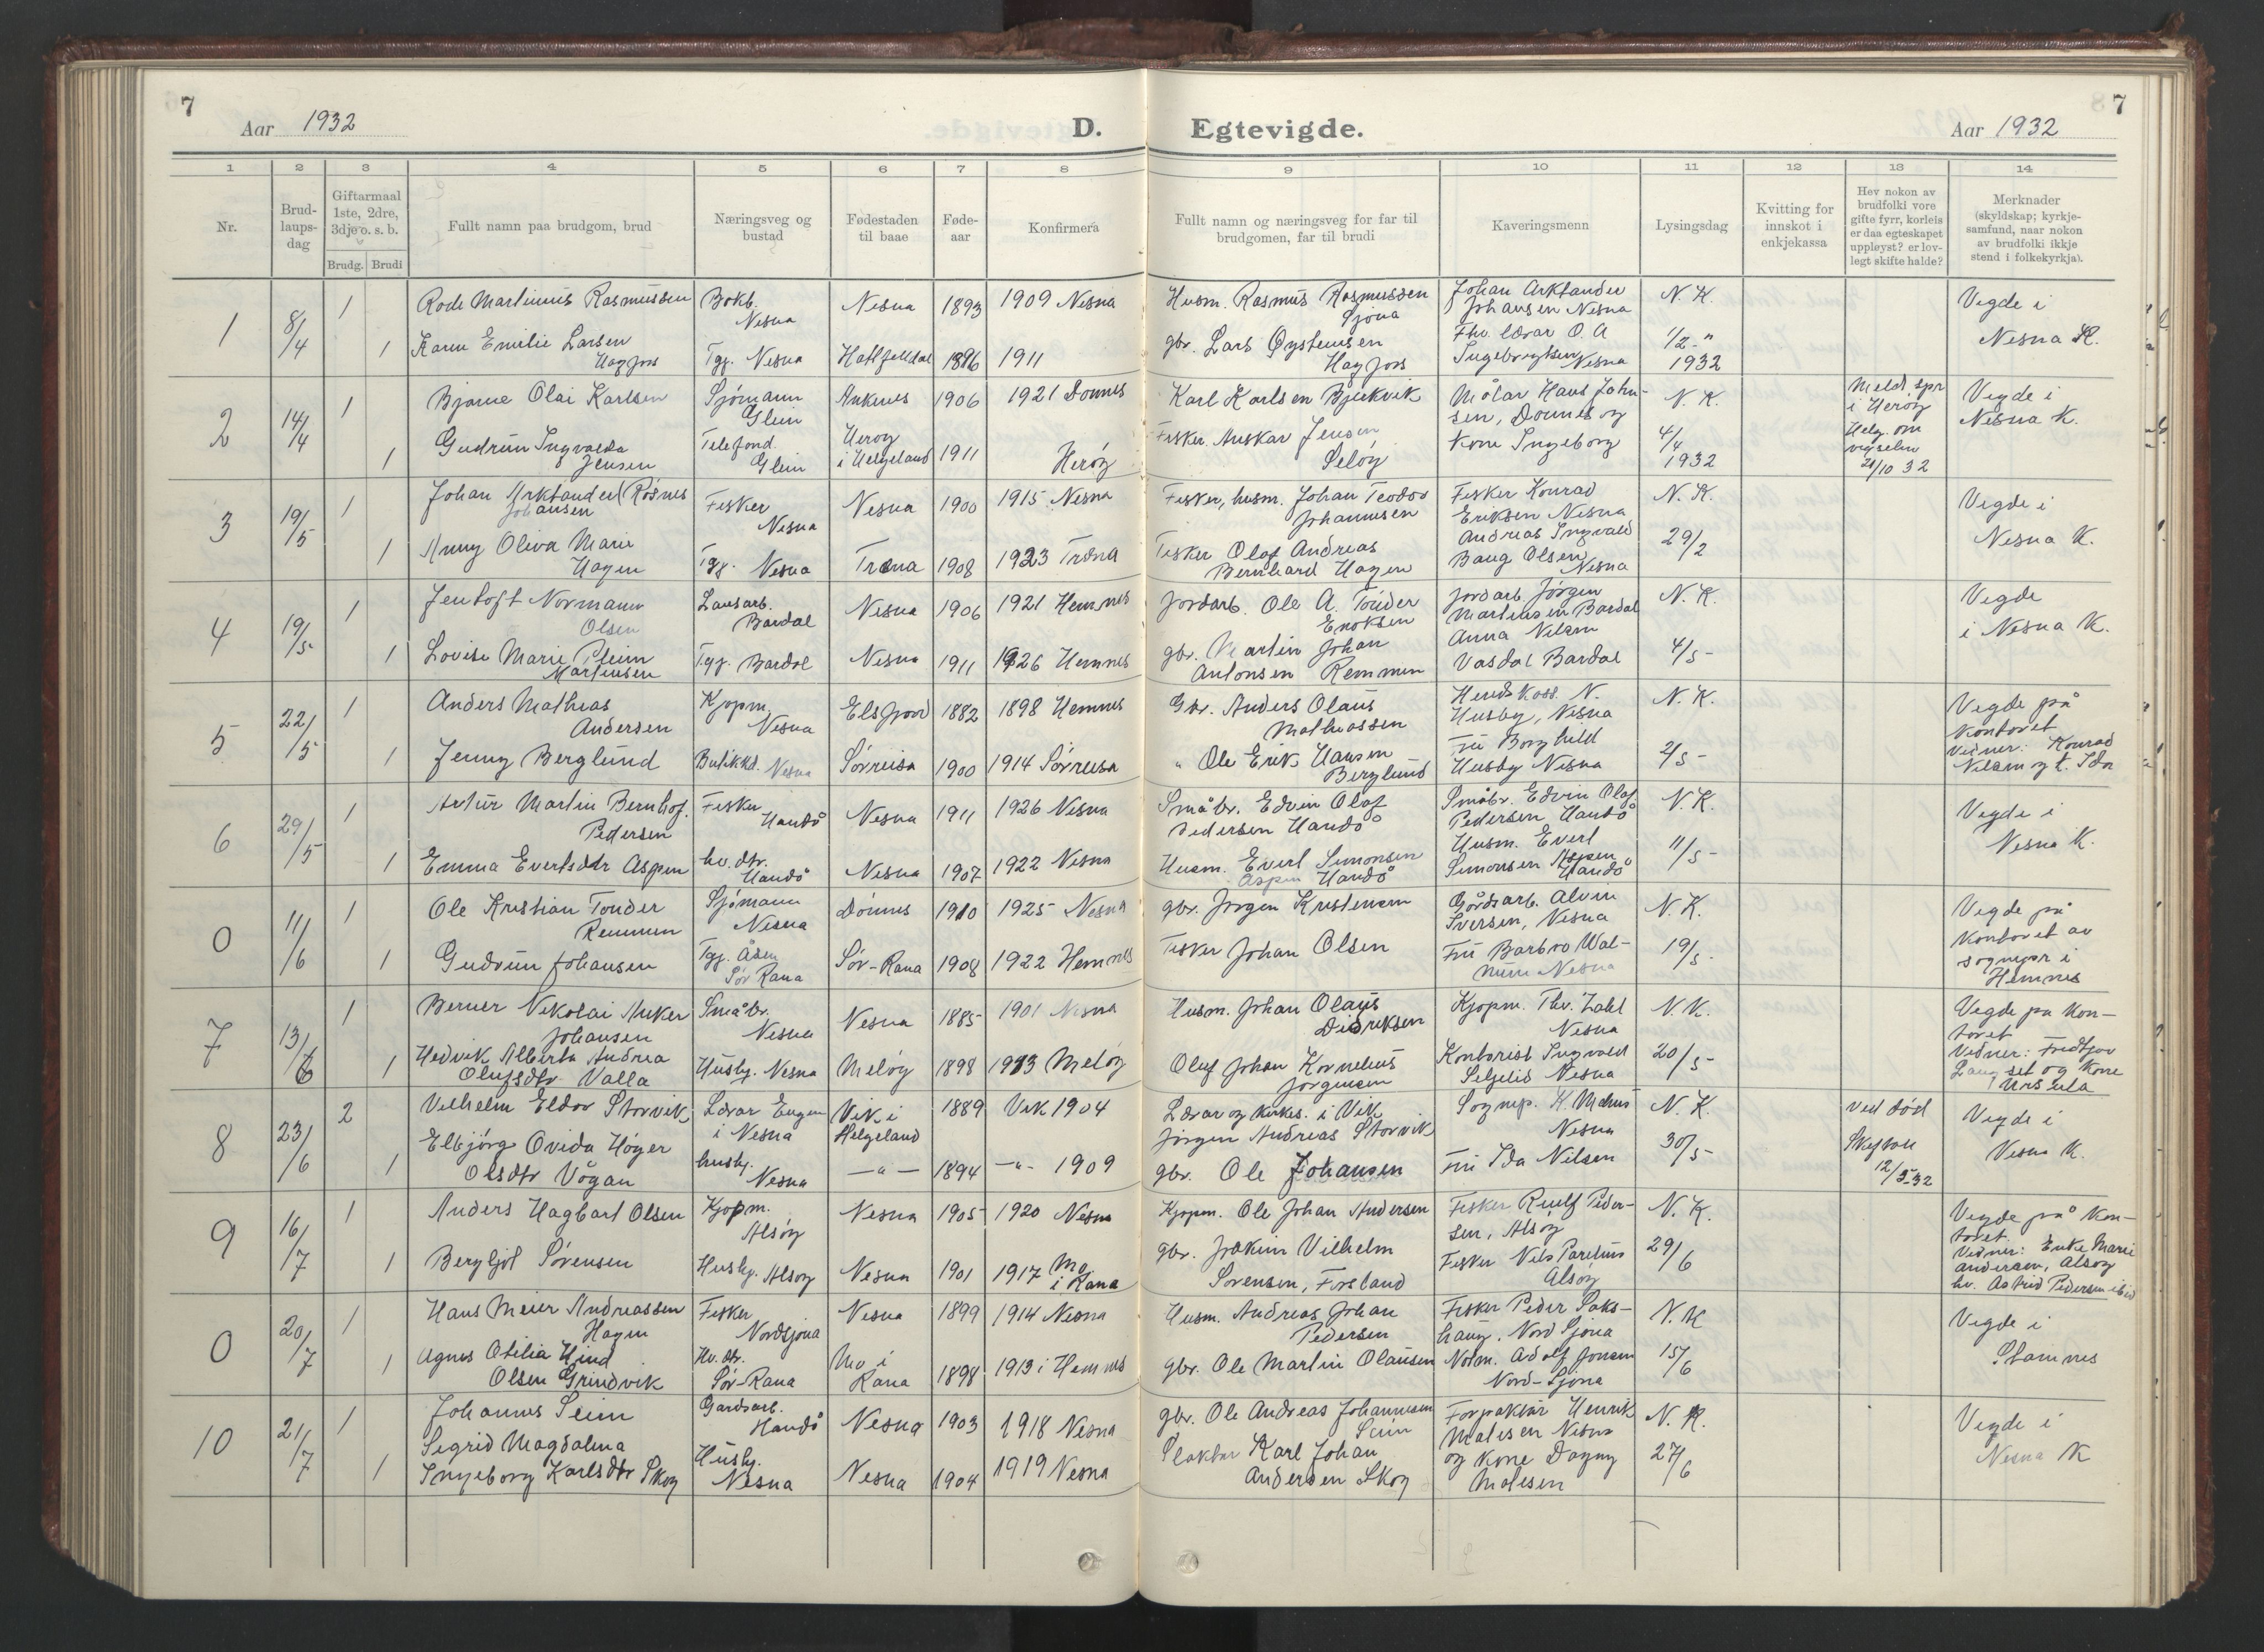 7
Aar 1932
D.
Egtevigde.
Aar 1932
7
1 2 3 4 5 6 7 8 9 10 11 12 13 14
Nr.
Brud-
laups-
dag
Giftarmaal
1ste, 2dre,
3dje o. s. b.
Brudg. Brudi
Fullt namn paa brudgom, brud
Næringsveg og
bustad
Fødestaden
til baae
Føde-
aar
Konfirmera
Fullt namn og næringsveg for far til
brudgomen, far til brudi
Kaveringsmenn
Lysingsdag
Kvitting for
innskot i
enkjekassa
Hev nokon av
brudfolki vore
gifte fyrr, korleis
er daa egteskapet
uppløyst? er lov-
legt skifte halde?
Merknader
(skyldskap; kyrkje-
samfund, naar nokon
av brudfolki ikkje
stend i folkekyrkja).
1
8/4
1
Rode Martinus Rasmussen
Nesna
Nesna
1893
1909 Nesna
Husm. Rasmus Rasmussen
Sjona
Johan Arktander
Johansen Nesna
N. K.
Vigde i
Nesna K.
1
Karen Emilie Larsen
Hagfors
Tgj. Nesna
Hatfjelldal
1896
1911
gbr. Lars Øystensen
Hagfors
Fhv. lærar O. A
Ingebrigtsen Nesna
1/2 - "
1932
2
14/4
1
Bjarne Olai Karlsen
Sjømann
Glein
Ankenes
1906
1921 Dønnes
Karl Karlsen Bjerkvik
Målar Hans John-
sen, Dønnes og
kone Ingeborg
N. K.
Meldt spr
i Herøy
Helg. om
vigselen
21/10 32
Vigde i
Nesna K.
1
Gudrun Ingvalda
Jensen
Telefond.
Glein
Herøy
i Helgeland
1911
Herøy
Fisker. Anskar Jensen
Seløy
4/4
1932
3
19/5
1
Johan Arktander (Røsnes
Johansen
Fisker
Nesna
Nesna
1900
1915 Nesna
Fisker, husm. Johan Teodor
Johannesen
Fisker Konrad
Eriksen Nesna
N. K.
Vigde i
Nesna K.
1
Anny Oliva Marie
Hagen
Tgj. Nesna
Træna
1908
1923 Træna
Fisker Olaf Andreas
Bernhard Hagen
Andreas Ingvald
Baug Olsen
Nesna
29/2
4
19/5
1
Jentoft Normann
Olsen
Lausarb.
Bardal
Nesna
1906
1921 Hemnes
Jordarb. Ole A. Tonder
Enoksen
Jordarb. Jørgen
Martinsen Bardal
N. K.
Vigde
i Nesna K.
1
Lovise Marie Pleim
Martinsen
Tgj. Bardal
Nesna
1911
1926 Hemnes
gbr. Martin Johan
Antonsen Remmen
Anna Nilsen
Vasdal Bardal
4/5 -
5
22/5
1
Anders Mathias
Andersen
Kjøpm.
Nesna
Elsfjord
1882
1898 Hemnes
Gbr. Anders Olaus
Mathiassen
Herredskass. N.
Husby, Nesna
N. K.
Vigde på
kontoret
Vidner: Konrad
1
Jenny Berglund
Butikkd. Nesna
Sørreisa
1900
1914 Sørreisa
" Ole Erik Hansen
Berglund
Fru Borghild
Husby Nesna
2/5 -
6
29/5
1
Artur Martin Bernhof.
Pedersen
Fisker
Handø
Nesna
1911
1926 Nesna
Småbr. Edvin Olaf
Pedersen Handø
Småbr. Edvin Olaf
Pedersen Handø
N. K.
Vigde i
Nesna K.
1
Emma Evertsdtr Aspen
hv. dtr.
Handø
Nesna
1907
1922 Nesna
Husm. Evert Simonsen
Aspen Handø
Husm. Evert
Simonsen Aspen
Handø
11/5 -
0
11/6
1
Ole Kristian Tonder
Remmen
Sjømann
Nesna
Dønnes
1910
1925 Nesna
gbr. Jørgen Kristensen
Gårdsarb. Alvin
Iversen, Nesna
N. K.
Vigde på
kontoret av
sognepr i
Hemnes
1
Gudrun Johansen
Tgj. Åsen
Sør Rana
Sør-Rana
1908
1922 Hemnes
Fisker Johan Olsen
Fru Barbro Wal-
num Nesna
19/5 -
7
13/6
1
Berner Nikolai Anker
Johansen
Småbr.
Nesna
Nesna
1885
1901 Nesna
Husm. Johan Olaus
Didriksen
Kjøpm. Thv. Zahl
Nesna
N. K.
Vigde på kon-
toret
Vidner: Fredtjov
Langset og kone
Ursula
1
Hedvik Alberta Andrea
Olufsdtr. Valla
Husby. Nesna
Meløy
1898
1913 Meløy
Oluf Johan Kornelius
Jørgensen
Kontorist Ingvald
Seljelid Nesna
20/5 -
8
23/6
2
Vilhelm Eldor Storvik
Lærar Eugen
i Nesna
Vik i
Helgeland
1889
Vik 1904
Lærar og kirkes. i Vik
Jørgen Andreas Storvik
Sognep. H.
Nesna
N. K.
Ved død
Skiftatt
12/5-32
Vigde i
Nesna K.
1
Elbjørg Ovida Høyer
Olsdtr Vågan
husby.
Nesna
— " —
1894
— " - 1909
gbr. Ole Johansen
Fru Ida Nilsen
30/5 -
9
16/7
1
Anders Hagbart Olsen
Kjøpm.
Alsøy
Nesna
1905
1920 Nesna
Kjøpm. Ole Johan Andersen
Fisker Rulf Peder-
sen, Alsøy
N. K.
Vigde på kon-
toret.
Vidner: Enke Marie
Andersen, Alsøy
hv. Astrid Pedersen ibid
1
Bergljot Sørensen
Husby. Alsøy
Nesna
1901
1917 Mo
i Rana
gbr. Joakim Vilhelm
Sørensen, Forsland
Fisker Nils Parelius
Alsøy
29/6
0
20/7
1
Hans Meier Andreassen
Hagen
Fisker
Nordsjona
Nesna
1899
1914 Nesna
Husm. Andreas Johan
Pedersen
Fisker Peder Saks-
haug, Nord Sjona
N. K
Vigde i
Stamnes
1
Agnes Otilia Hind
Olsen Grindvik
Hv. dtr.
Sør-Rana
Mo i
Rana
1898
1913 i Hemnes
gbr. Ole Martin Olausen
Notm. Adolf Jonsen
Nord-Sjona
15/6
10
21/7
1
Johannes Seim
Gardsarb.
Handø
Nesna
1903
1918 Nesna
gbr. Ole Andreas Johannesen
Seim
Forpaktar Henrik
Malesen Nesna
og kone Dagny
Malesen
N. K.
Vigde i
Nesna K
1
Sigrid Magdalena
Ingeborg Karlsdtr Skog
Husby.
Nesna
Nesna
1904
1919 Nesna
Slaktar Karl Johan
Andersen Skog
27/6